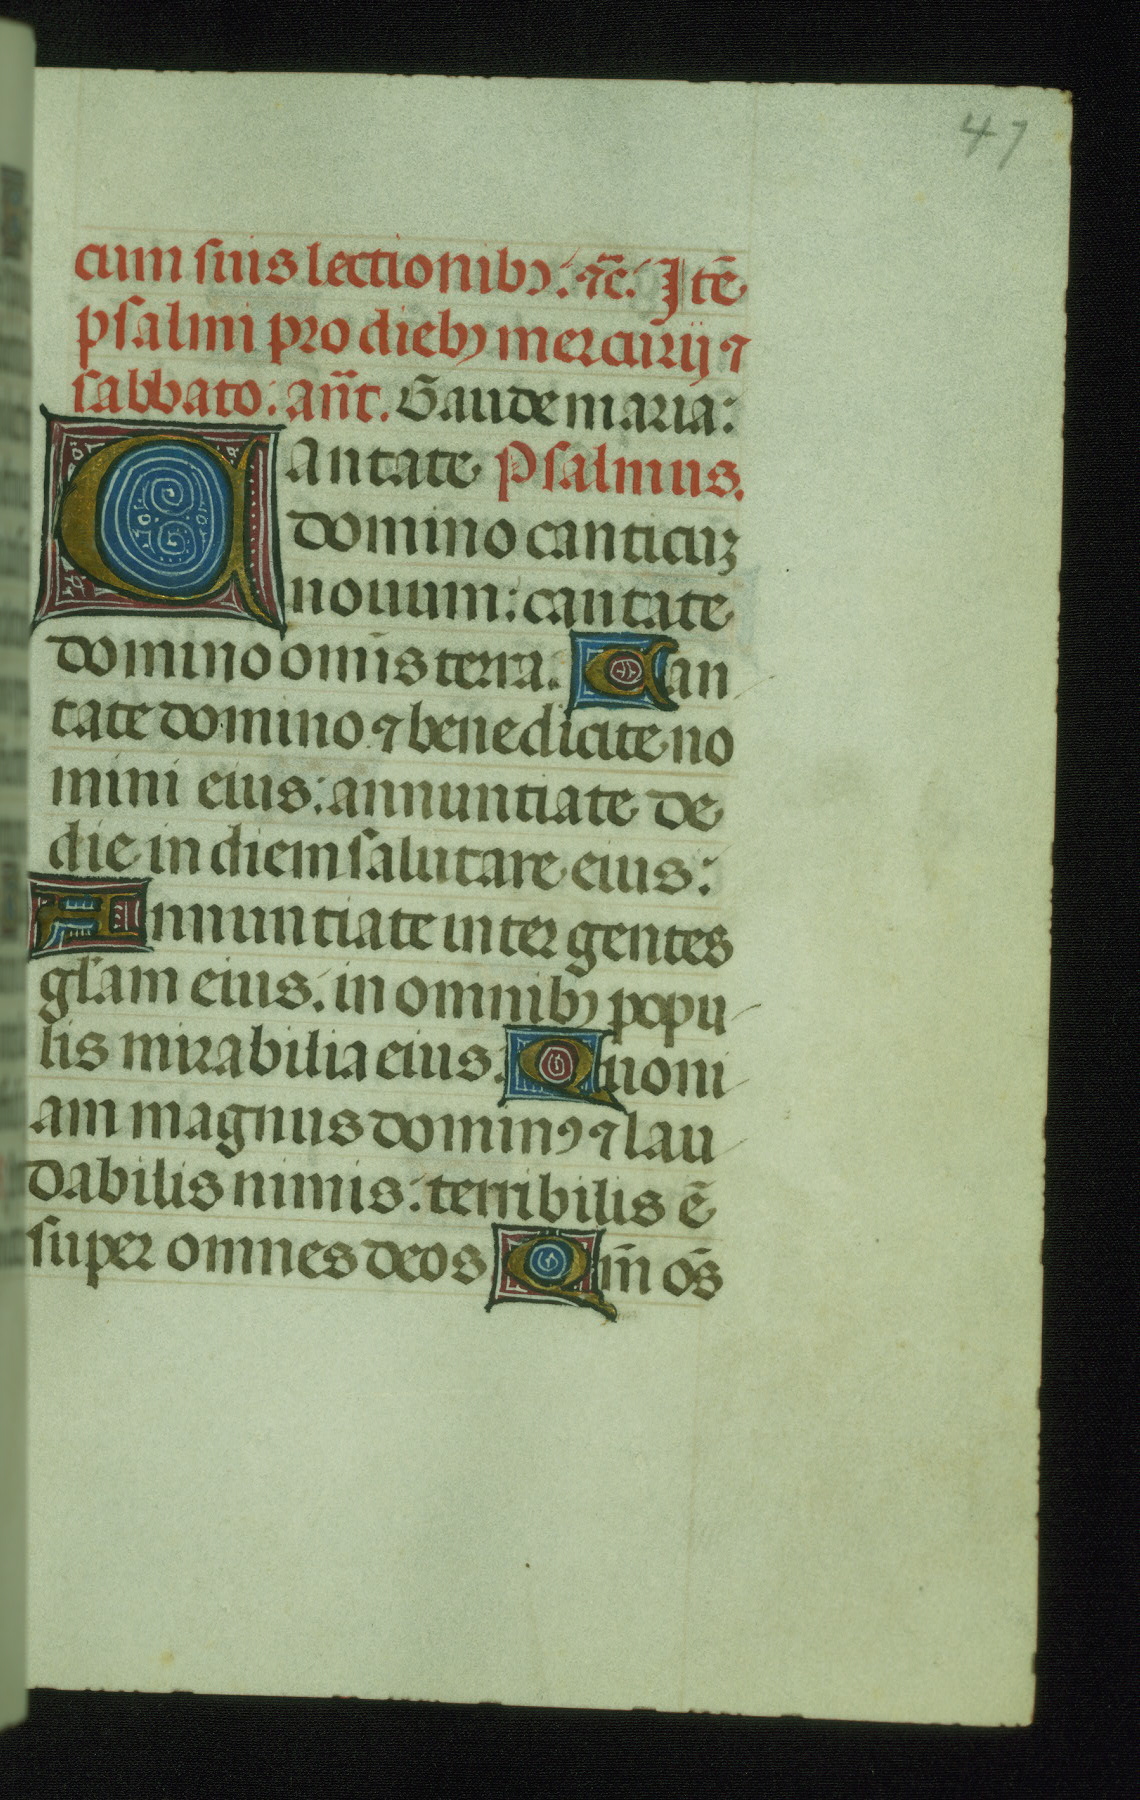 47
cum suis lectionibꝫ: ⁊c̃: Itẽ
psalmi pro diebꝫ mercurij ⁊
sabbato: añt. Gaude maria:
Cantate Psalmus.
domino canticuꝫ
nouum: cantate
domino omīs terra. Can
tate domino ⁊ benedicite no
mini eius: annuntiate de
die in diem salutare eius:
Annuntiate inter gentes
gl̃am eius: in omnibꝫ popu
lis mirabilia eius. Quoni
am magnus dominꝰ ⁊ lau
dabilis nimis: terribilis ẽ
super omnes deos Qm̃ oẽs